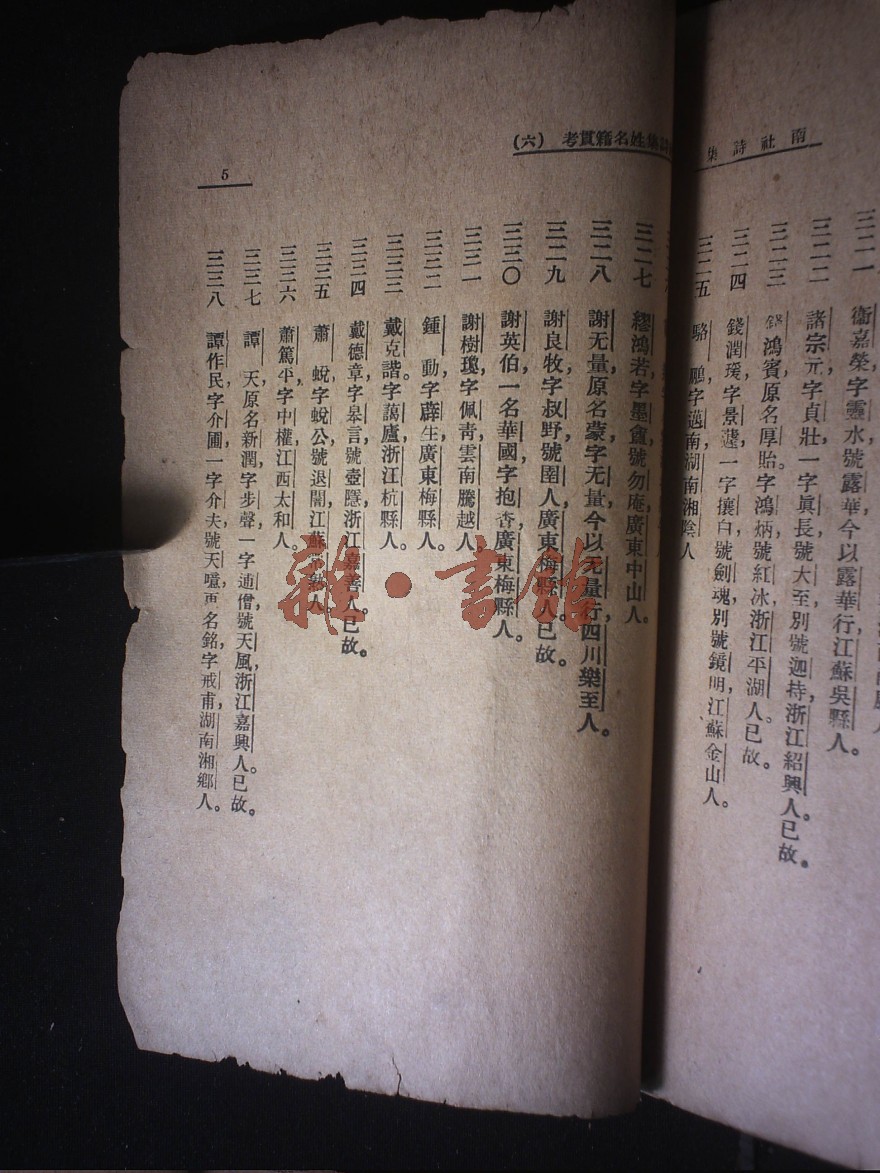 南社詩集
三二一　衞嘉榮，字靈水，號露華，今以露華行，江蘇吳縣人。
三二二　諸宗元，字貞壯，一字眞長，號大至，別號迦持，浙江紹興人。已故。
三二三　鴻賓，原名厚貽。字鴻炳，號紅冰，浙江平湖人。已故。
三二四　錢潤瑗，字景蘧，一字攘白，號劍魂，別號鏡明，江蘇金山人。
三二五　駱　鵬，字邁南，湖南湘陰人
姓名籍貫考（六）
5
三二七　繆鴻若，字墨盦，號勿庵，廣東中山人。
三二八　謝无量，原名蒙，字无量，今以无量行，四川樂至人。
三二九　謝良牧，字叔野，號圉人，廣東梅縣人。已故。
三三〇　謝英伯，一名華國，字抱香，廣東梅縣人。
三三一　謝樹瓊，字佩青，雲南騰越人。
三三二　鍾　動，字薜生，廣東梅縣人。
三三三　戴克諧。字藹廬，浙江杭縣人。
三三四　戴德章，字皋言，號壺隱，浙江嘉善人。已故。
三三五　蕭　蛻，字蛻公，號退闇，江蘇常熟人。
三三六　蕭篤平，字中權，江西太和人。
三三七　譚　天，原名新潤，字步聲，一字逋僧，號天風，浙江嘉興人。已故。
三三八　譚作民，字介圃，一字介夫，號天噫，更名銘，字戒甫，湖南湘鄉人。
雜·書館